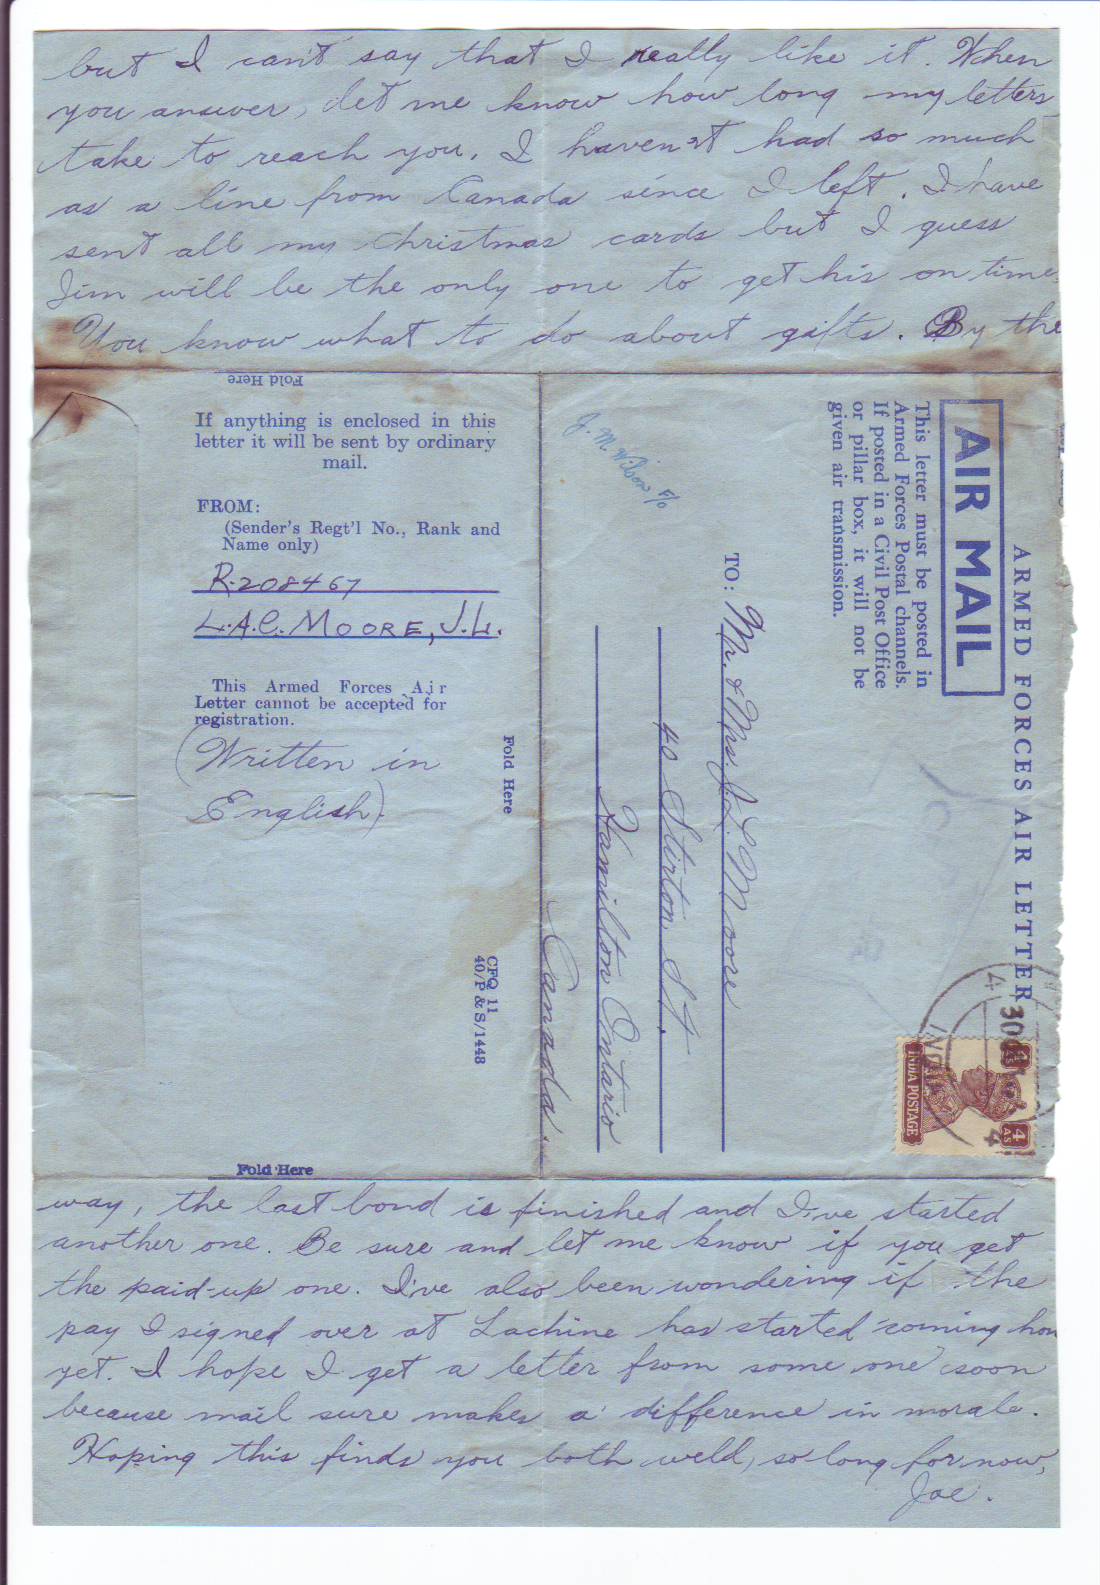 but I can't say that I really like it. When
you answer, let me know how long my letters
take to reach you. I haven't had so much
as a line from Canada since I left. I have
sent all my christmas cards but I guess
Jim will be the only one to get his on time.
You know what to do about gifts. By the
Fold Here
If anything is enclosed in this
letter it will be sent by ordinary
mail.
FROM:
(Sender's Regt'l No., Rank and
Name only)
R-208467
L.A.C. MOORE, J.L.
This Armed Forces Air
Letter cannot be accepted for
registration.
(Written in
English)
Fold Here
CFQ 11
40/P & S/1448
Fold Here
ARMED FORCES AIR LETTER
AIR MAIL
This letter must be posted in
Armed Forces Postal channels.
If posted in a Civil Post Office
or pillar box, it will not be
given air transmission.
J. M. Wilson F/O
TO: Mr. & Mrs. J. L. Moore
40 Stirton St.
Hamilton Ontario
Canada.
4 AS
4 AS
INDIA POSTAGE
way, the last bond is finished and I've started
another one. Be sure and let me know if you get
the paid-up one. I've also been wondering if the
pay I signed over at Lachine has started coming hom
yet. I hope I get a letter from some one soon
because mail sure makes a difference in morale.
Hoping this finds you both well, so long for now,
Joe.